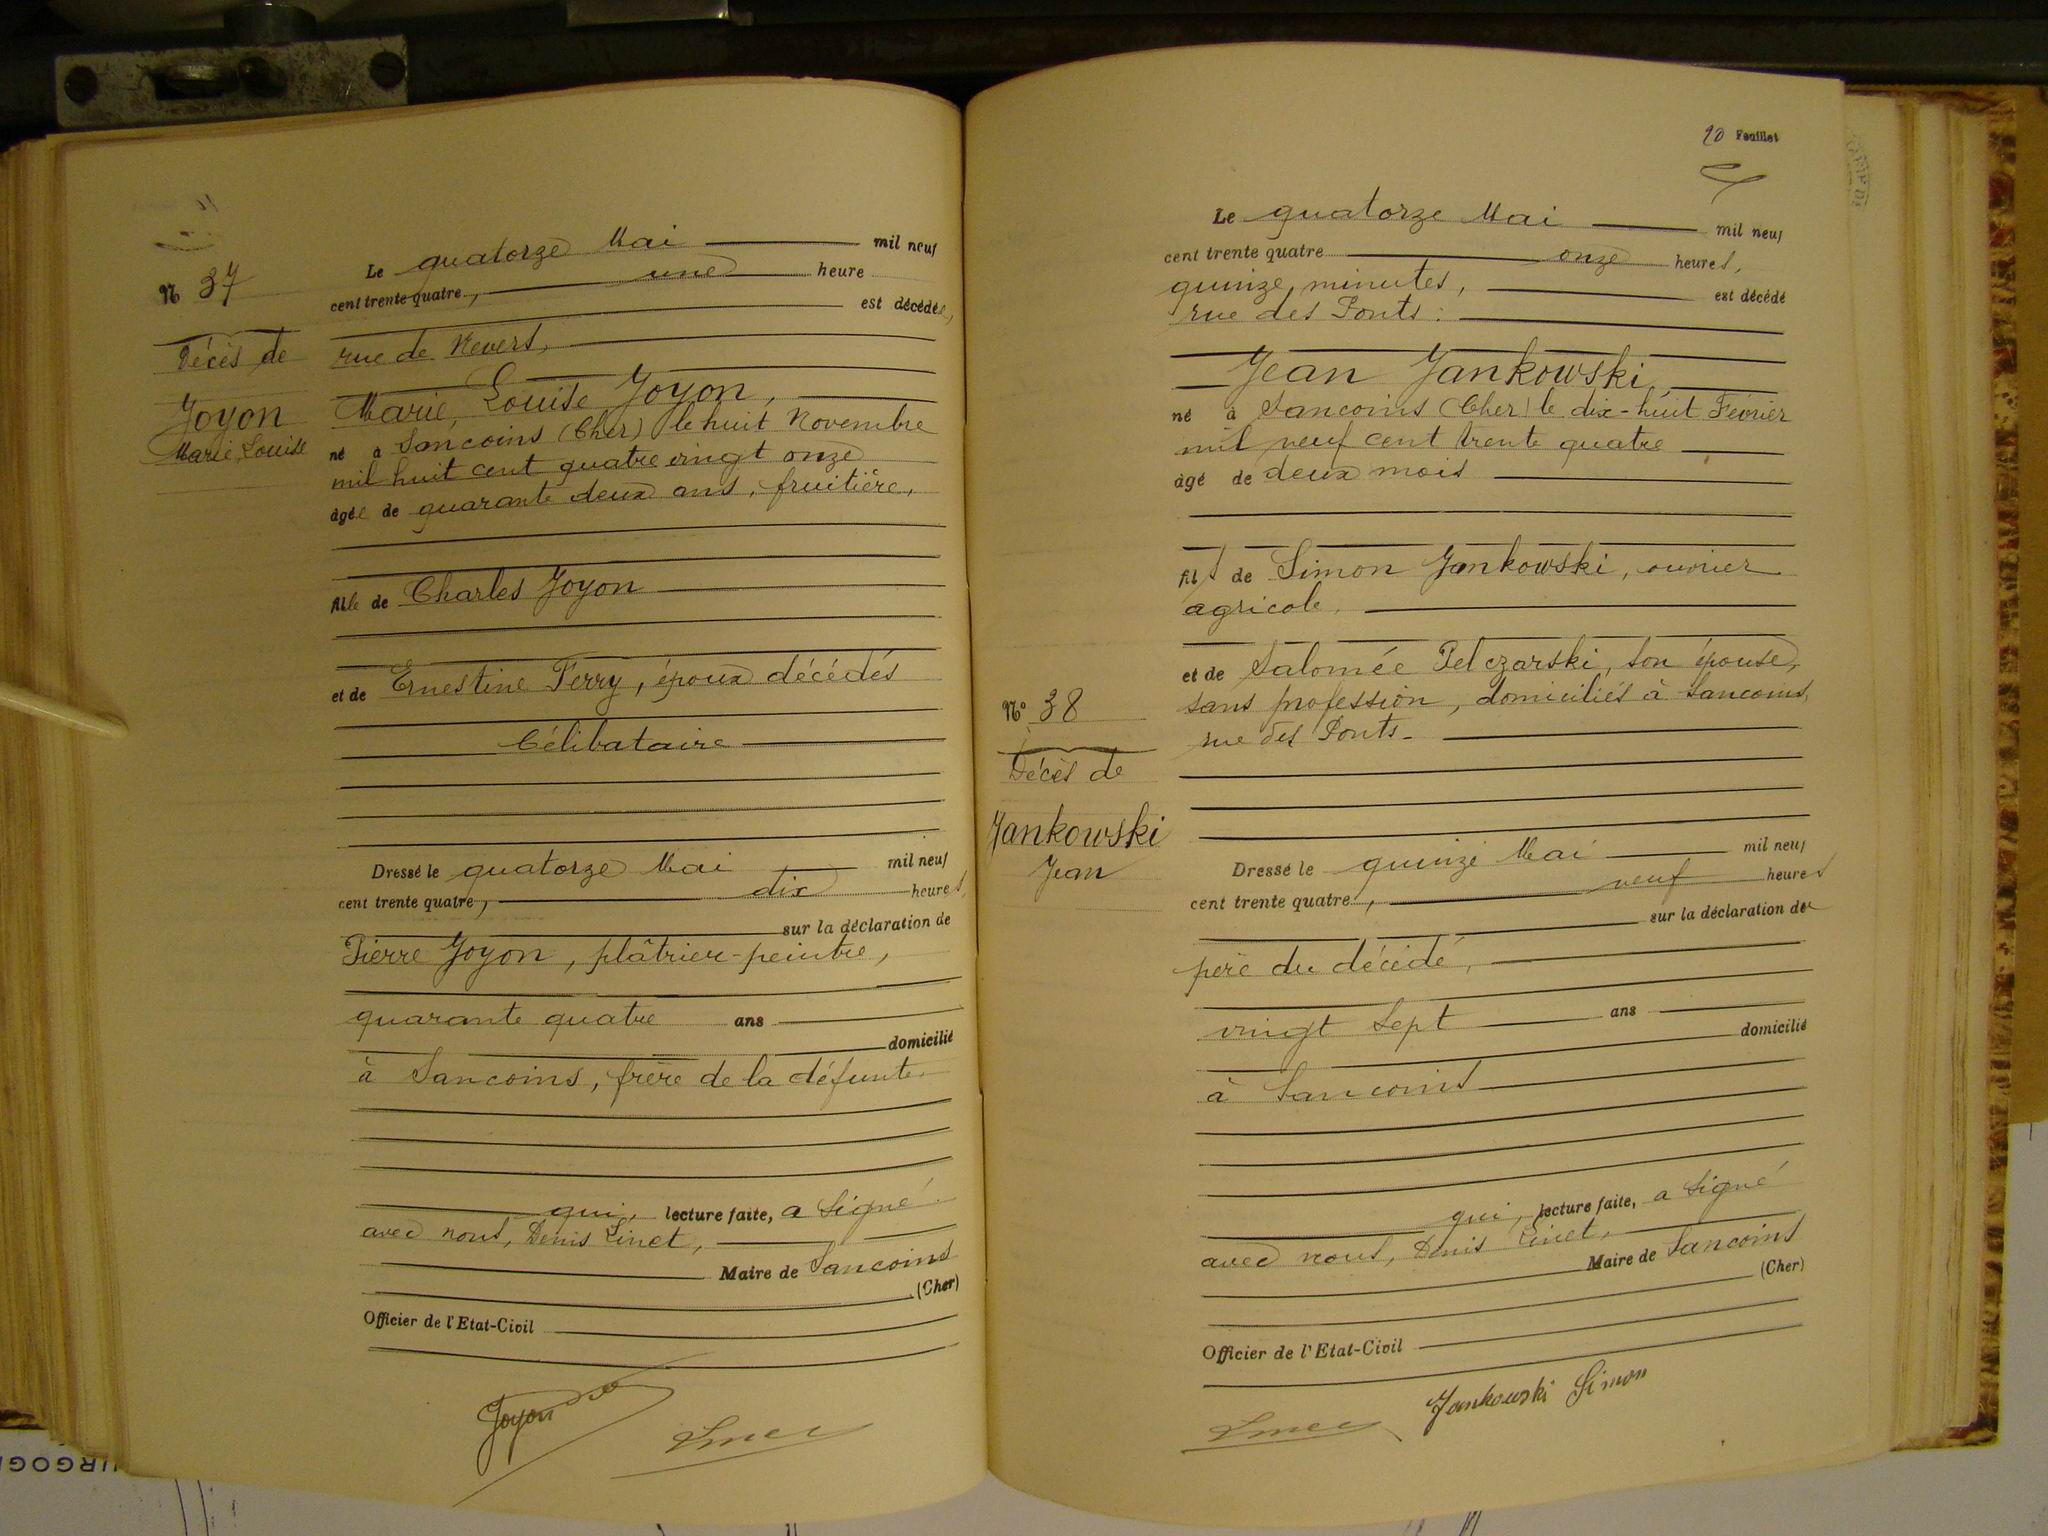 N 37
Décès de
Joyon
Marie Louise
Le quatorze Mai mil neuf
cent trente quatre, une heure
est décédée,
rue de Nevers,
Marie Louise Joyon,
né à Sancoins (Cher) le huit Novembre
mil huit cent quatre vingt onze
âgée de quarante deux ans, fruitière,
fille de Charles Joyon
et de Ernestine Ferry, époux décédés
Célibataire
Dressé le quatorze Mai mil neuf
cent trente quatre, dix heures,
sur la déclaration de
Pierre Joyon, plâtrier-peintre,
quarante quatre ans
domicilié
à Sancoins, frère de la défunte.
qui, lecture faite, a signé
avec nous, Denis Linet,
Maire de Sancoins
(Cher)
Officier de l'Etat-Civil
Joyon
20 Feuillet
N° 38
Décès de
Jankowski
Jean
Le quatorze Mai mil neuf
cent trente quatre onze heures,
quinze minutes, est décédé
rue des Ponts :
Jean Jankowski
né à Sancoins (Cher) le dix-huit Février
mil neuf cent trente quatre
âgé de deux mois
fils de Simon Jankowski, ouvrier
agricole,
et de Salomée Pelczarski, son épouse,
sans profession, domiciliés à Sancoins,
rue des Ponts.
Dressé le quinze Mai mil neuf
cent trente quatre, neuf heures
sur la déclaration du
père du décédé,
vingt sept ans
domicilié
à Sancoins
qui, lecture faite, a signé
avec nous, Denis Linet,
Maire de Sancoins
(Cher)
Officier de l'Etat-Civil
Jankowski Simon